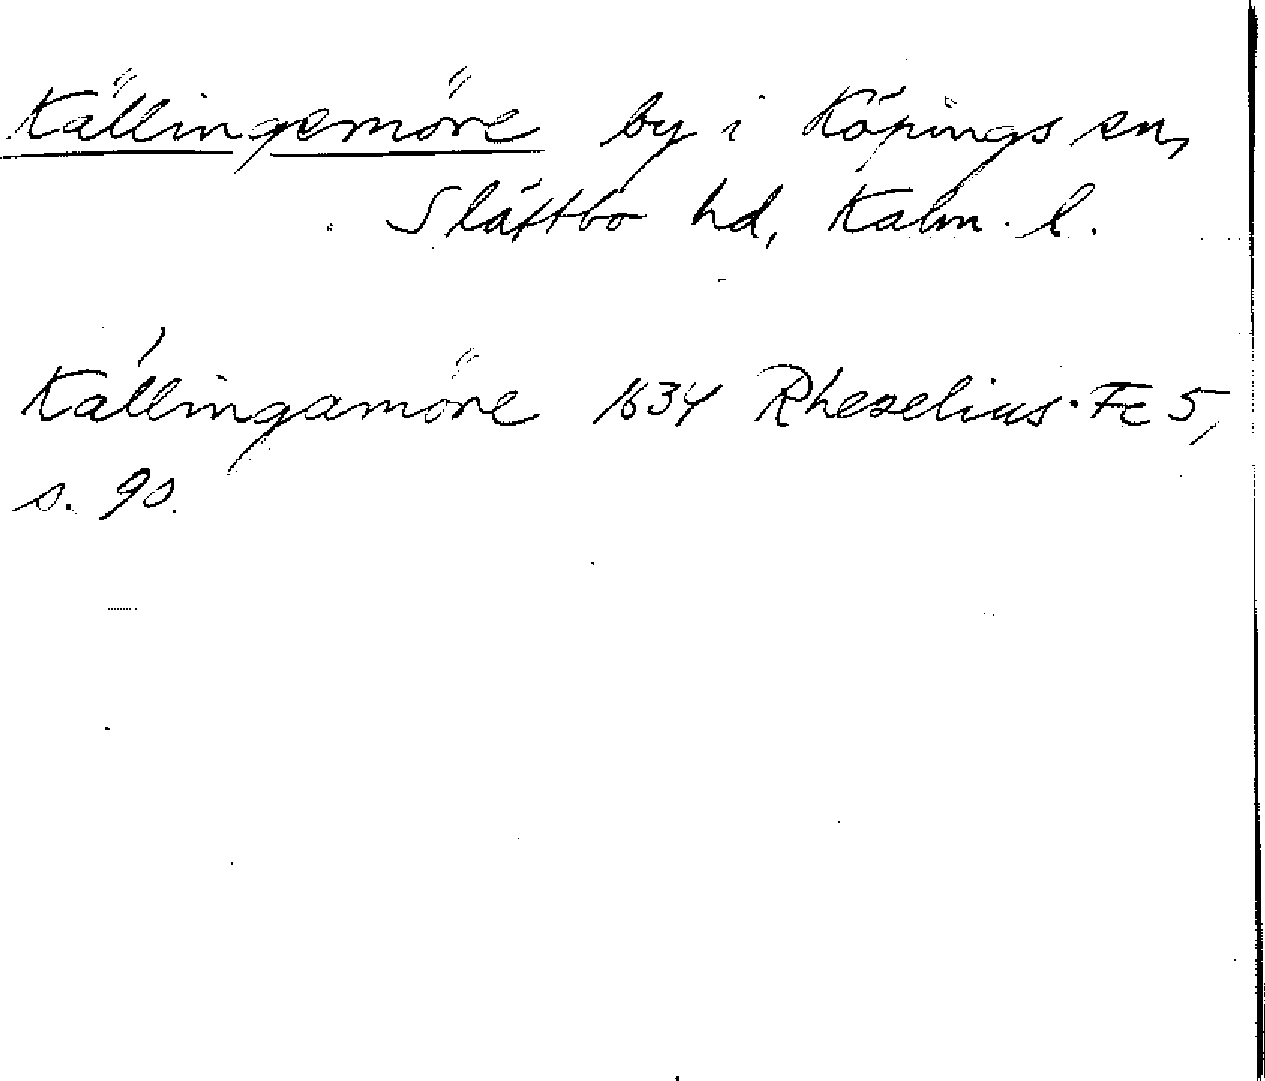 Källingemöre by i Köpings sn,
Slättbo hd, Kalm. l.
Källingamöre 1634 Rhezelius. Fc 5,
s. 90.